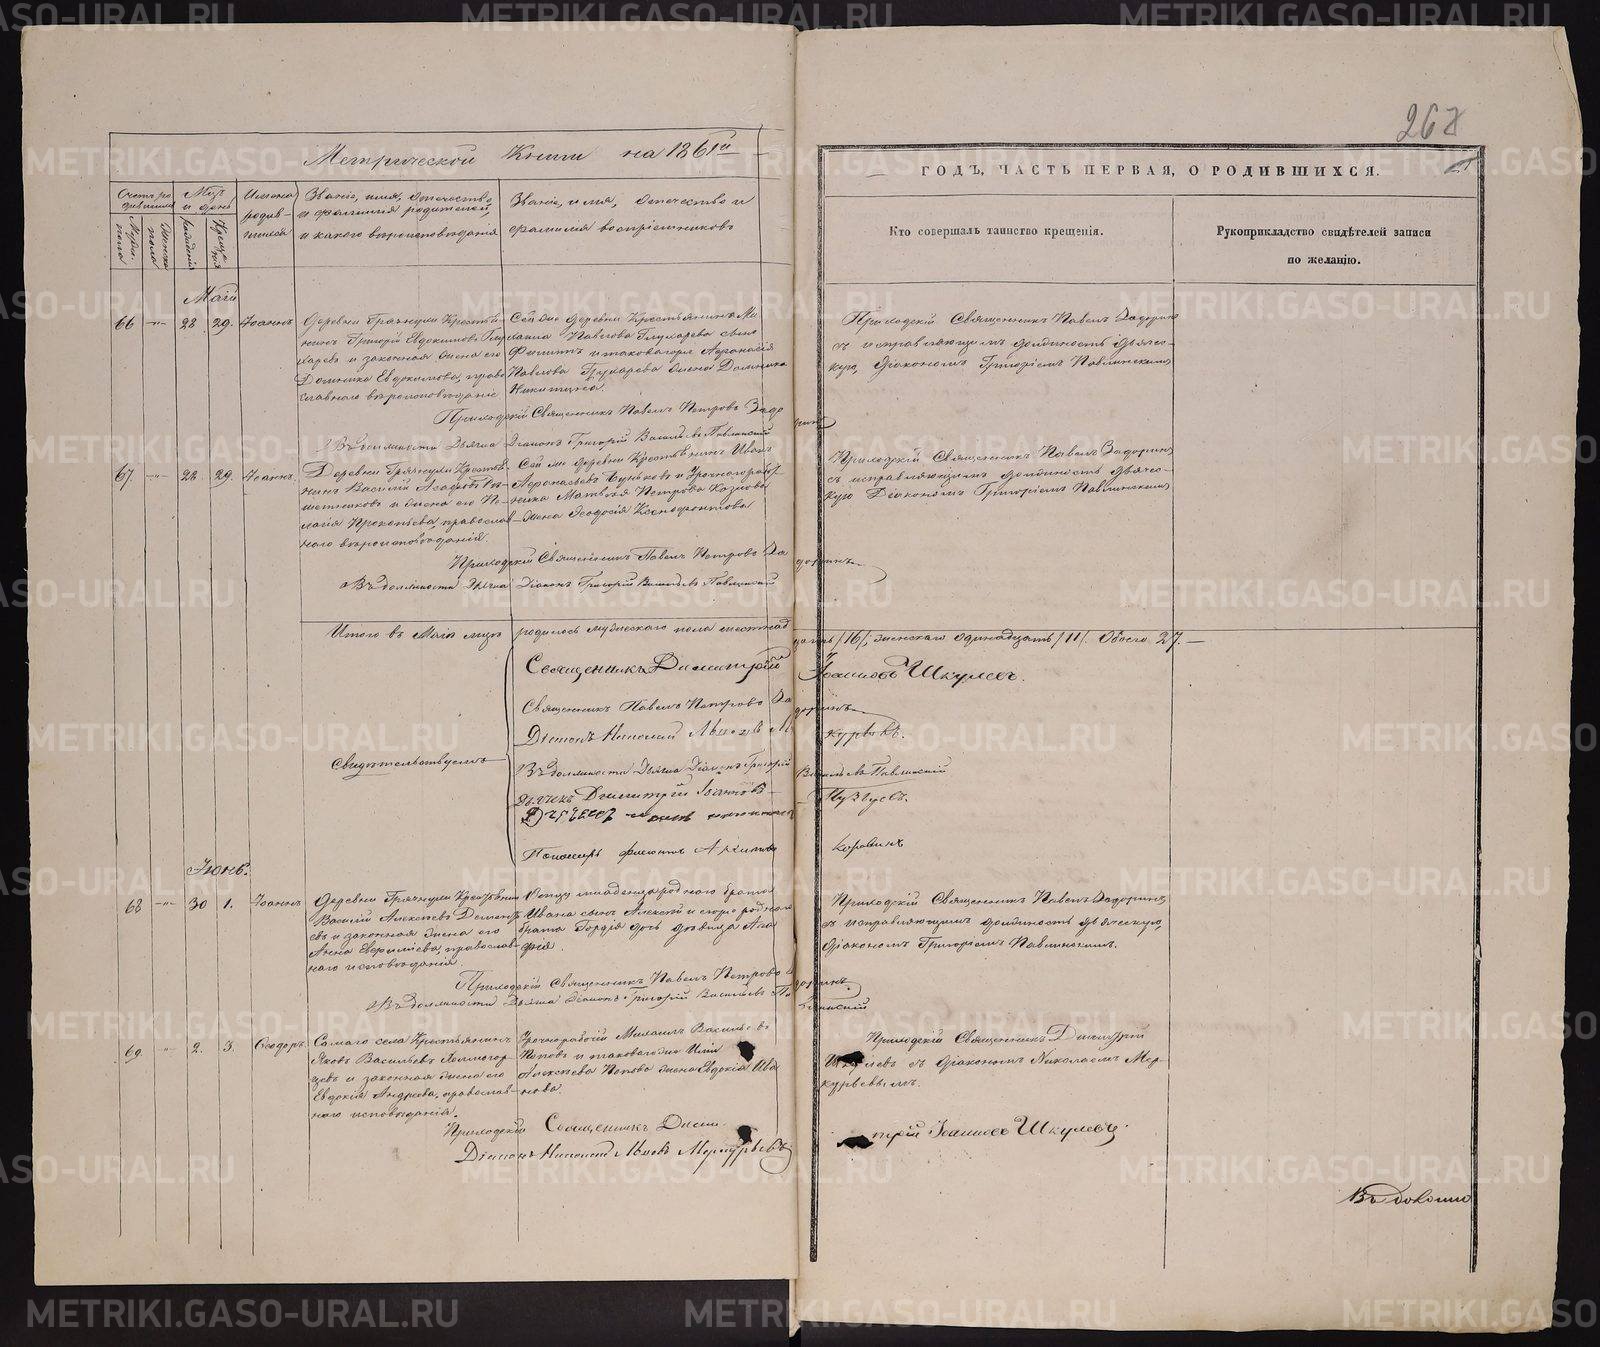 268
Метрической Книги на 1861й
ГОДЪ, ЧАСТЬ ПЕРВАЯ, О РОДИВШИХСЯ.
Счетъ ро-
дившихся
Мужес.
пола
Женска
пола
Мцъ
и день
рожденія
Крещенія
Имена
родив-
шихся
Званіе, имя, отчество
и фамилія родителей,
и какого вѣроисповѣданія
Званіе, имя, отчество и
фамилія воспріемниковъ
Кто совершалъ таинство крещенія.
Рукоприкладство свидѣтелей записи
по желанію.
Маій
66 —"— 28 29. Іоаннъ
Деревни Грязнухи Крестья-
нинъ Григорій Евдокимовъ Глу-
харевъ и законная жена его
Домника Евдокимова, право-
славнаго вѣроисповѣданія
Сей же деревни Крестьянина Ми-
хаила Павлова Глухарева сынъ
Филиппъ и таковагоже Афонасія
Павлова Глухарева жена Домника
Никитина.
Приходскій Священникъ Павелъ Задоринъ
съ исправляющимъ должность дьячес-
кую, Діакономъ Григоріемъ Павлинскимъ
Приходскій Священникъ Павелъ Петровъ Задоринъ
Въ должности Дьячка Діаконъ Григорій Васильевъ Павлинскій
67. —"— 28 29. Іоаннъ
Деревни Грязнухи Крестья-
нинъ Василій
и жена его Пе-
лагія Прокопьева, православ-
наго вѣроисповѣданія.
Сей же деревни Крестьянинъ Иванъ
Афонасьевъ и Урочноработ-
ника Матвѣя Петрова Козлова
жена Ѳеодосія Ксенофонтова
Приходскій Священникъ Павелъ Задоринъ
съ исправляющимъ должность дьячес-
кую Діакономъ Григоріемъ Павлинскимъ
Приходскій Священникъ Павелъ Петровъ Задоринъ
Въ должности Дьячка Діаконъ Григорій Васильевъ Павлинскій
Итого въ Маіѣ мцѣ родилось мужескаго пола шестнадцать /16/, женскаго одинадцать /11/. Обоего 27. —
Священникъ Димитрій Іоанновъ Шкулевъ.
Священникъ Павелъ Петровъ Задоринъ
Діаконъ Николай Львовъ Меркурьевъ.
Свидѣтельствуемъ
Въ должности Дьячка Діаконъ Григорій Васильевъ Павлинскій
Дьячекъ Димитрій Іоанновъ Пузыревъ.
Пономарь Филиппъ Коровинъ
Іюнь.
68 —"— 30 1. Іоаннъ
Деревни Грязнухи Крестьянинъ
Василій Алексѣевъ Дементь-
евъ и законная жена его
Анна православ-
наго исповѣданія
Отца младенца роднаго брата
Ивана сынъ Алексѣй и егоже роднаго
брата Гордія дочь дѣвица Ага-
фія.
Приходскій Священникъ Павелъ Задоринъ
съ исправляющимъ должность дьяческую,
Діакономъ Григоріемъ Павлинскимъ.
Приходскій Священникъ Павелъ Петровъ Задоринъ
Въ должности Дьячка Діаконъ Григорій Васильевъ Павлинскій
69. —"— 2. 3. Ѳеодоръ
Самаго села Крестьянинъ
Яковъ Васильевъ Холмогор-
цевъ и законная жена его
Евдокія Андреева, православ-
наго исповѣданія.
Урочнорабочій Михаилъ Васильевъ
Поповъ и таковагоже
Алексѣева Попова жена Евдокія Ива-
нова.
Приходскій Священникъ Димитрій
Шкулевъ съ Діакономъ Николаемъ Мер-
курьевымъ.
Приходскій Священникъ Димитрій Іоанновъ Шкулевъ.
Діаконъ Николай Львовъ Меркурьевъ
METRIKI.GASO-URAL.RU